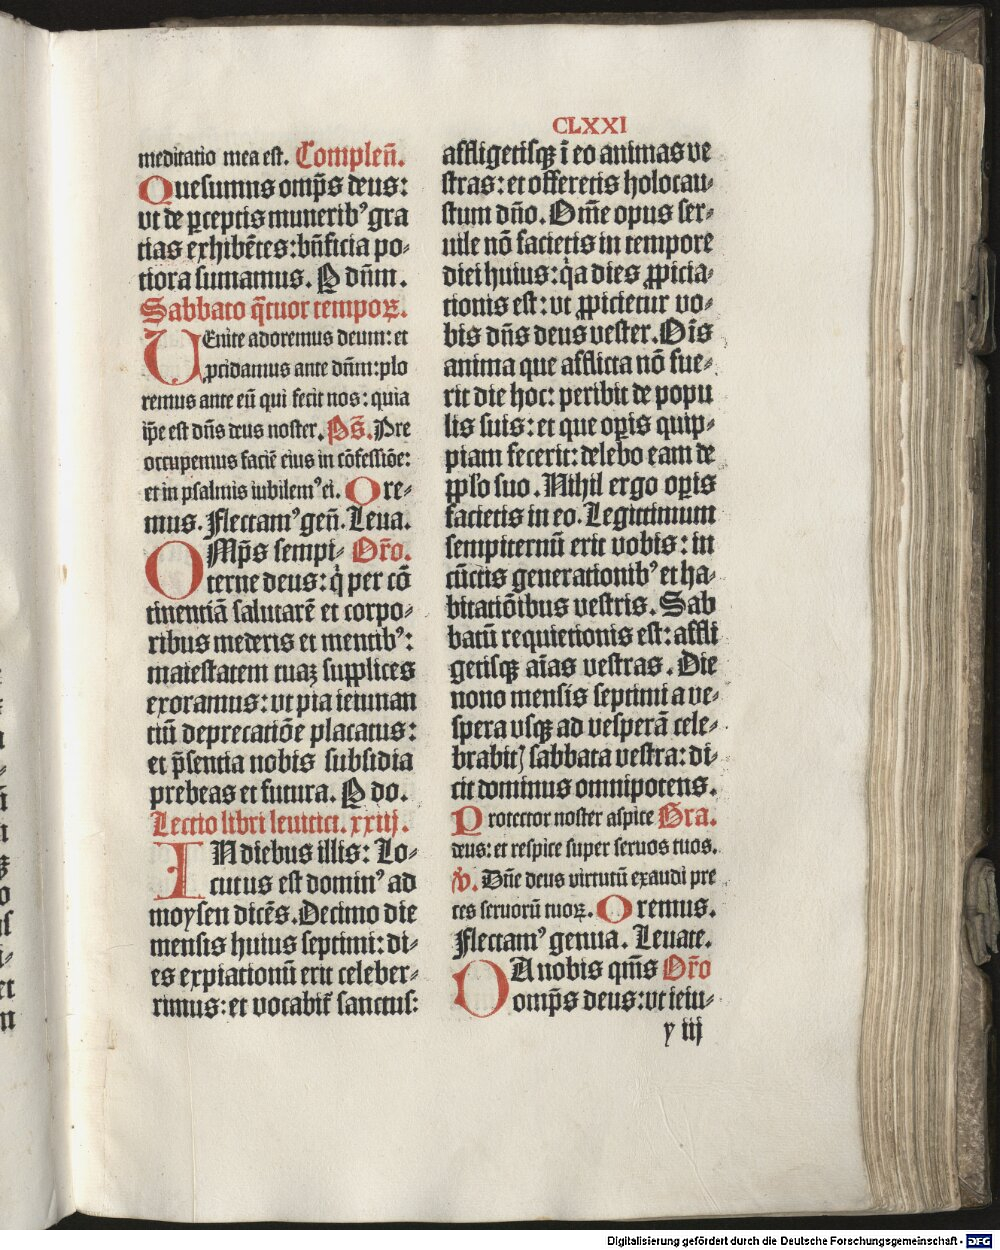 CLXXI
meditatio mea est. Compleñ.
Quesumus omp̃s deus:
vt de ꝑceptis munerib⁹ gra
tias exhibẽtes: bñficia po⸗
tiora sumamus. P dñm.
Sabbato q̃tuor tempoꝝ.
VEnite adoremus deum: et
ꝓcidamus ante dñm: plo
remus ante eũ qui fecit nos: quia
ip̃e est dñs deus noster. Ps̃. Pre
occupemus faciẽ eius in cõfessiõe:
et in psalmis iubilem⁹ ei. Ore⸗
mus. Flectam⁹ geñ. Leua.
OMp̃s sempi⸗ Or̃o.
terne deus: q̇ per cõ
tinentiã salutarẽ et corpo⸗
ribus mederis et mentib⁹:
maiestatem tuaꝫ supplices
exoramus: vt pia ieiunan
tiũ deprecatiõe placatus:
et p̃sentia nobis subsidia
prebeas et futura. P do.
Lectio libri leuitici. xxiij.
IN diebus illis: Lo⸗
cutus est domin⁹ ad
moysen dicẽs. Decimo die
mensis huius septimi: di⸗
es expiationũ erit celeber⸗
rimus: et vocabit̃ sanctus:
affligetisqꝫ ĩ eo animas ve
stras: et offeretis holocau⸗
stum dño. Om̃e opus ser⸗
uile nõ facietis in tempore
diei huius: q̇a dies ꝓpicia⸗
tionis est: vt ꝓpicietur vo⸗
bis dñs deus vester. Oĩs
anima que afflicta nõ fue⸗
rit die hoc: peribit de popu
lis suis: et que oꝑis quip⸗
piam fecerit: delebo eam de
pp̃lo suo. Nihil ergo oꝑis
facietis in eo. Legittimum
sempiternũ erit vobis: in
cũctis generationib⁹ et ha⸗
bitatiõibus vestris. Sab
batũ requietionis est: affli
getisqꝫ aĩas vestras. Die
nono mensis septimi a ve⸗
spera vsqꝫ ad vesperã cele⸗
brabitꝭ sabbata vestra: di⸗
cit dominus omnipotens.
Protector noster aspice Gra.
deus: et respice super seruos tuos.
v̾. Dñe deus virtutũ exaudi pre
ces seruorũ tuoꝝ. Oremus.
Flectam⁹ genua. Leuate.
DA nobis qm̃s Or̃o
omp̃s deus: vt ieiu⸗
y iij
Digitalisierung gefördert durch die Deutsche Forschungsgemeinschaft - DFG